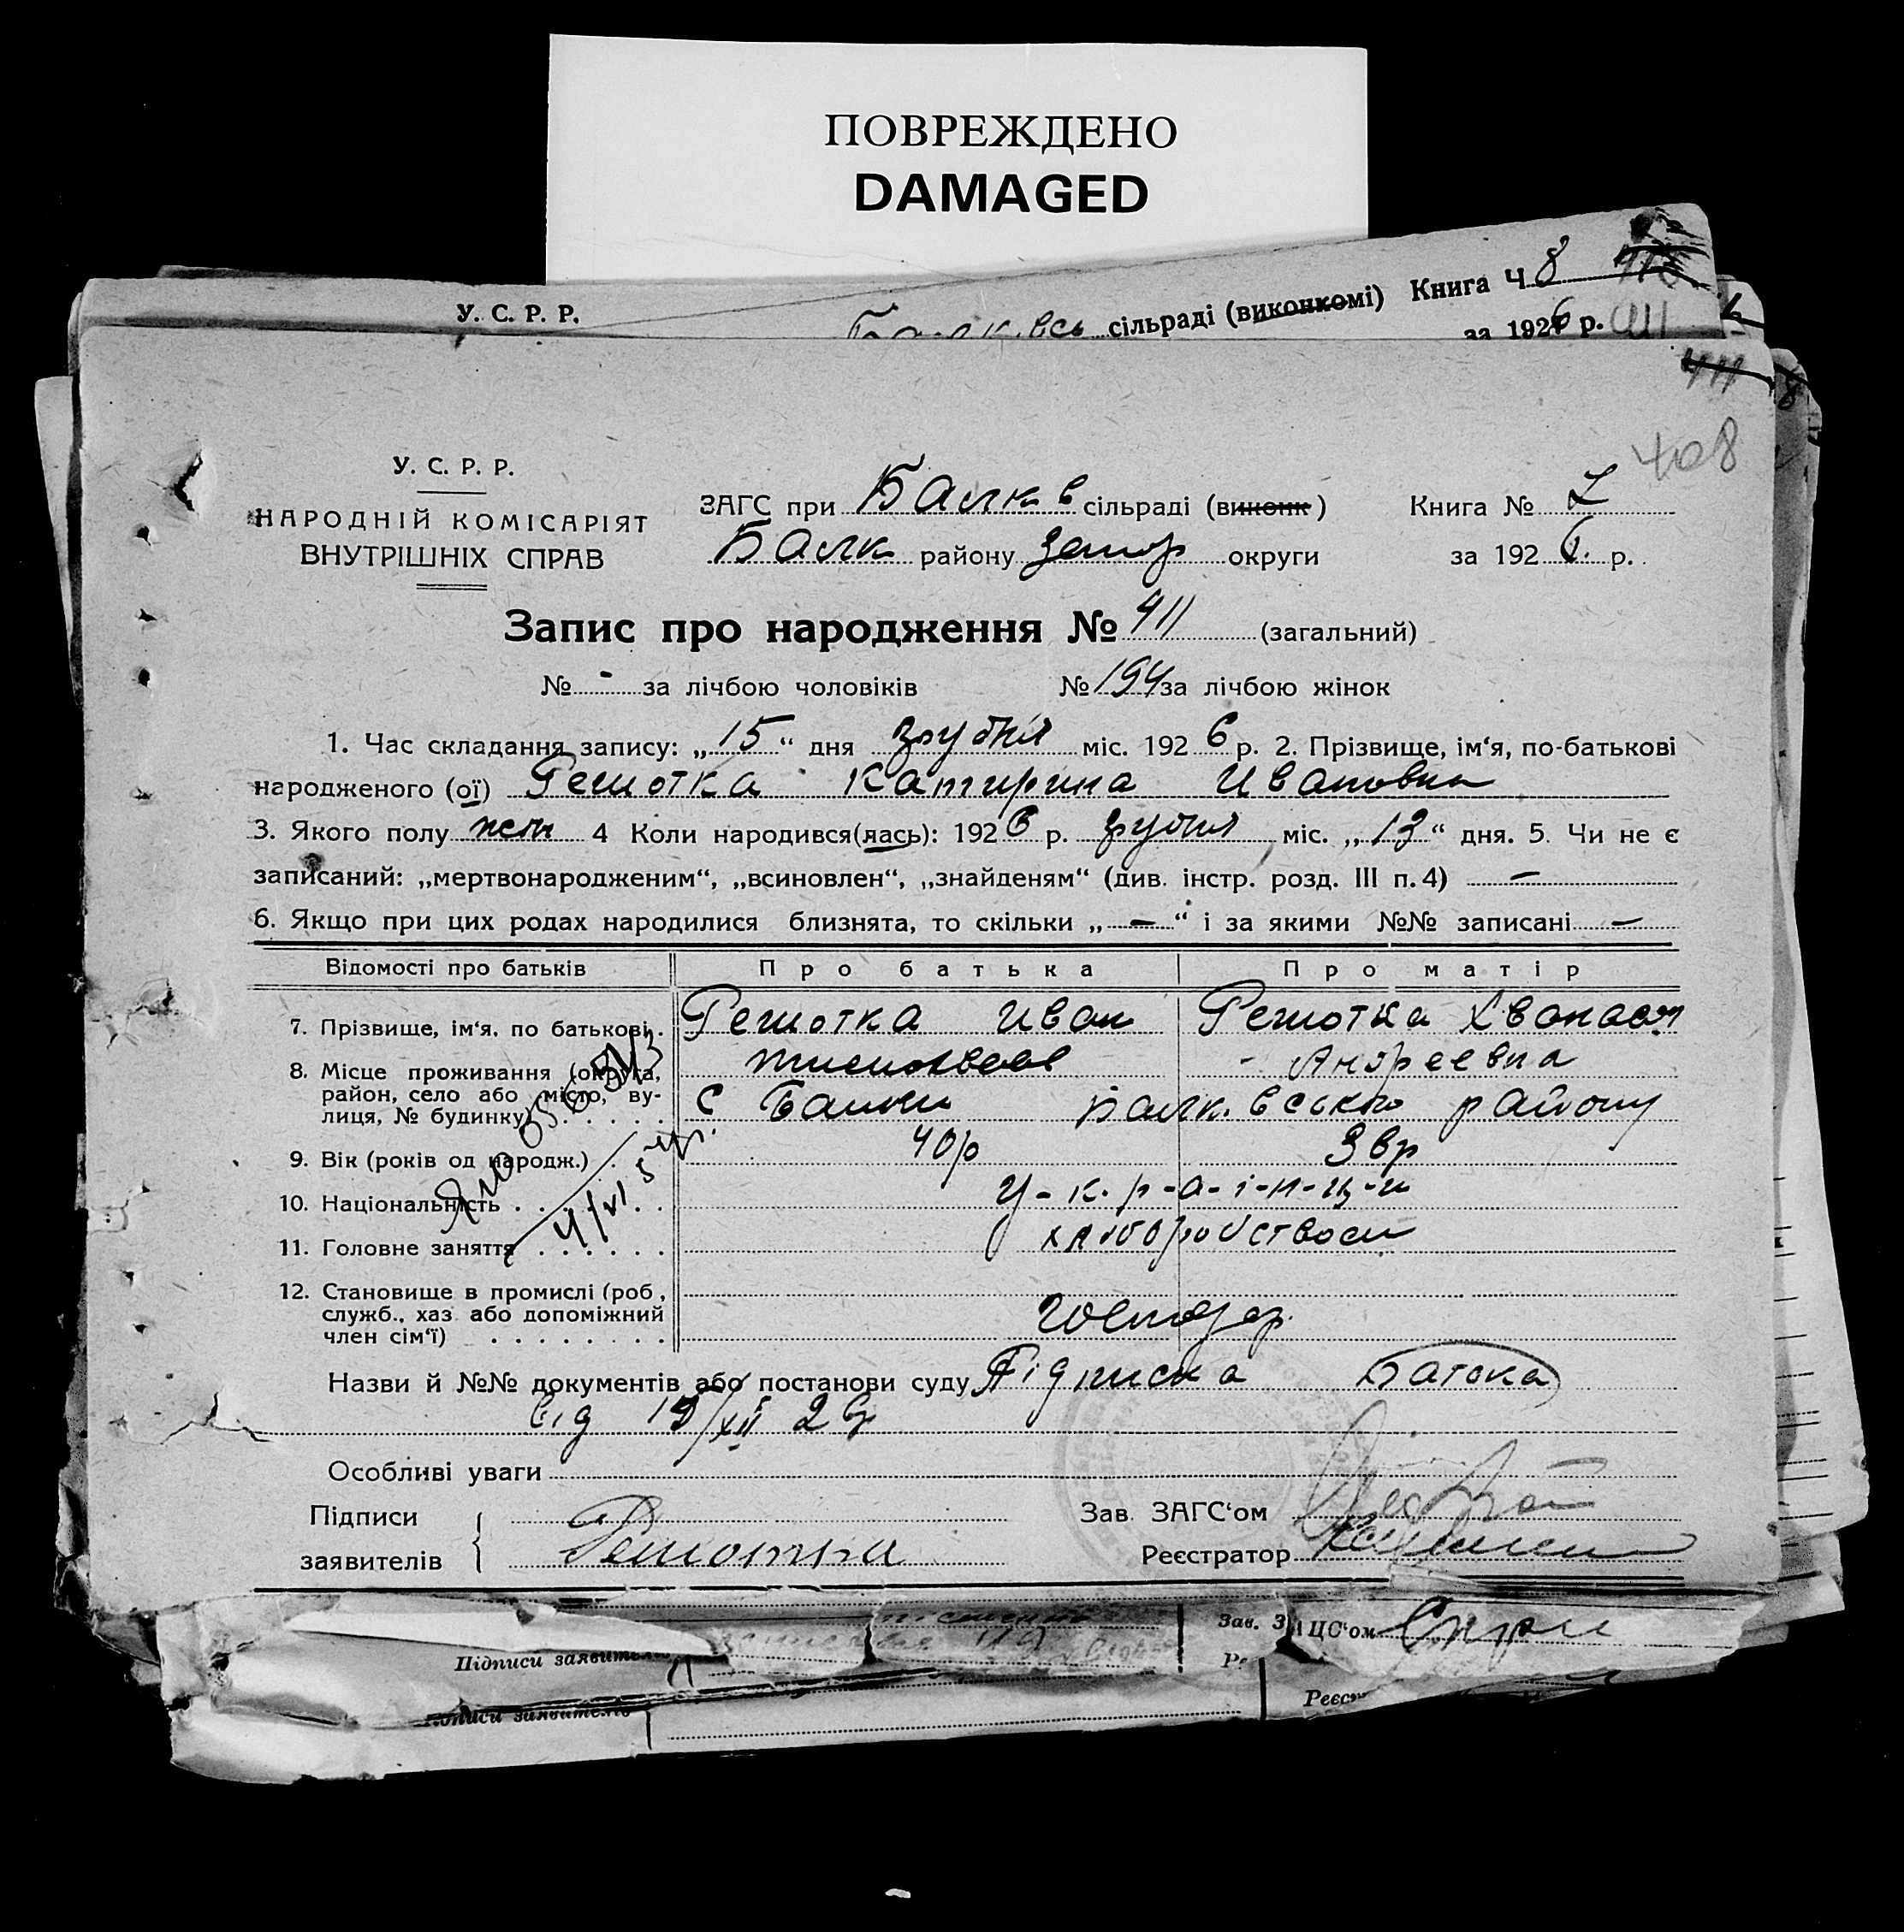 ПОВРЕЖДЕНО
DAMAGED
У. С. Р. Р.
сільраді (виконкомі) Книга Ч 8
за 1926 р. 411
411
408
У. С. Р. Р.
НАРОДНІЙ КОМІСАРІЯТ
ВНУТРІШНІХ СПРАВ
ЗАГС при Балк в сільраді (виконк) Книга №
Балк району Запор округи за 1926 р.
Запис про народження № 411 (загальний)
№ - за лічбою чоловіків № 194 за лічбою жінок
1. Час складання запису: „15“ дня грудня міс. 1926 р. 2. Прізвище, ім‘я, по-батькові
народженого (ої) Решотка Катирина Ивановна
3. Якого полу жен 4 Коли народився(лась): 1926 р. грудня міс. „13“ дня. 5. Чи не є
записаний: „мертвонародженим“, „всиновлен“, „знайденям“ (див. інстр. розд. III п. 4) —
6. Якщо при цих родах народилися близнята, то скільки „—“ і за якими №№ записані —
Відомості про батьків Про батька Про матір
7. Прізвище, ім‘я, по батькові. Решотка Иван Решотка Хванас
Андреевна
8. Місце проживання (округа,
район, село або місто, ву-
лиця, № будинку) С Балки Балк. вського району
9. Вік (років од народж.) 40р
10. Національність у-к-р-а-і-н-ц-и
11. Головне заняття хліборобством
12. Становище в промислі (роб,
служб., хаз або допоміжний
член сім‘ї) господар.
Назви й №№ документів або постанови суду Підписка Батска
від 15/XII 26р
Особливі уваги
Підписи
заявителів Решотка
Зав. ЗАГС‘ом
Реєстратор
Підписи заявителів
Зав. ЗАЦС‘ом
Підписи заявителів